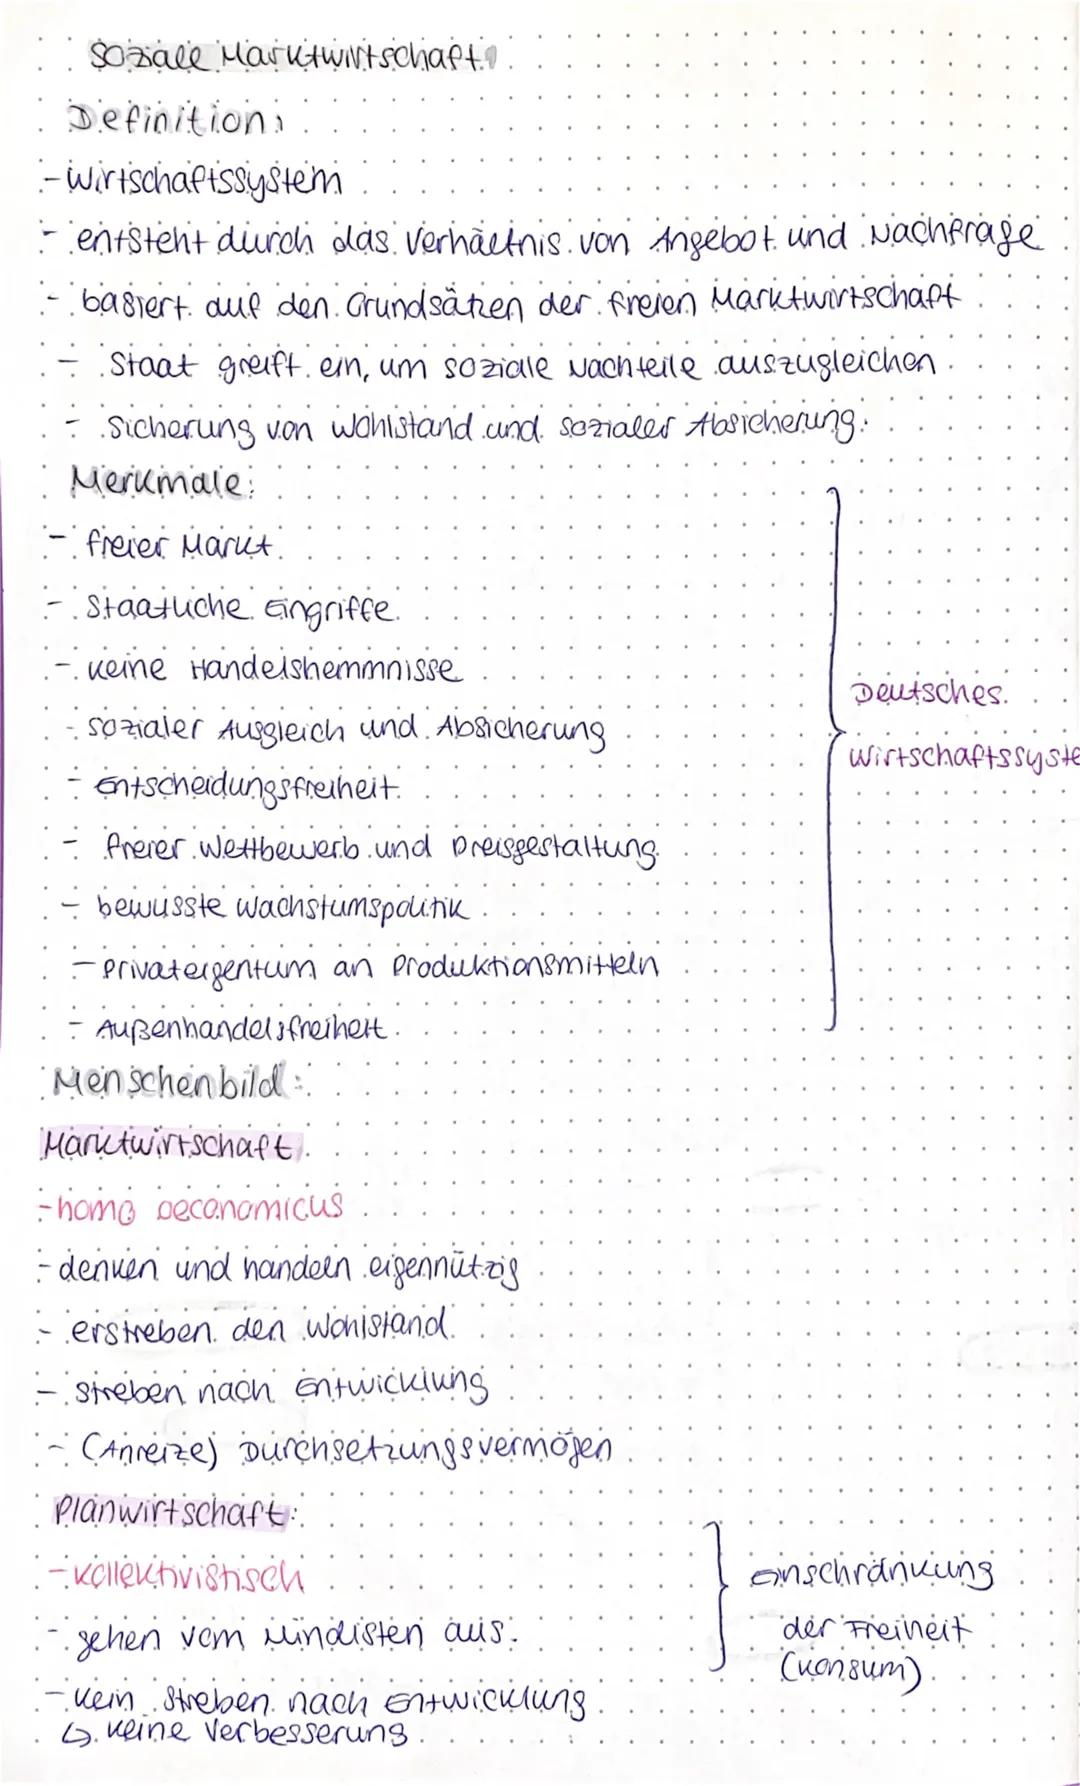 Soziale Marktwirtschaft
Definition:
- Wirtschaftssystem
- entsteht durch das Verhältnis von Angebot und Nachfrage
- basiert auf den Grundsätzen der freien Marktwirtschaft
- Staat greift ein, um soziale Nachteile auszugleichen
- Sicherung von Wohlstand und sozialer Absicherung.
Merkmale:
- freier Markt
- Staatliche Eingriffe
- keine Handelshemmnisse
- sozialer Ausgleich und Absicherung
- Entscheidungsfreiheit
- freier Wettbewerb und Preisgestaltung
- bewusste Wachstumspolitik
- Privateigentum an Produktionsmitteln
- Außenhandelsfreiheit
Deutsches
Wirtschaftssyste
Menschenbild:
Marktwirtschaft
- homo oeconomicus
- denken und handeln eigennützig
- erstreben den Wohlstand
- streben nach Entwicklung
- (Anreize) Durchsetzungsvermögen
Planwirtschaft:
- kollektivistisch
- gehen vom Mindisten aus.
- kein Streben nach Entwicklung
↳ keine Verbesserung
Einschränkung
der Freiheit
(Konsum)